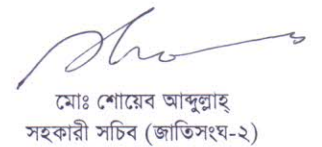 মোঃ শোয়েব আব্দুল্লাহ্
সহকারী সচিব (জাতিসংঘ-২)